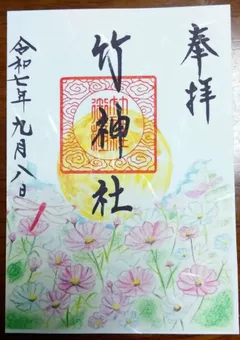 奉拝
竹神社
令和七年九月八日